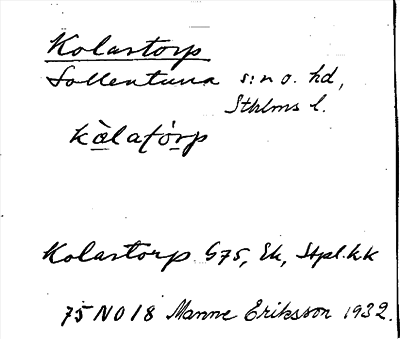 Kolastorp
Sollentuna s:n o. hd,
Sthlms l.
kålatórp
Kolastorp G75, Ek, Stpl.kk
75 NO 18 Manne Eriksson 1932.